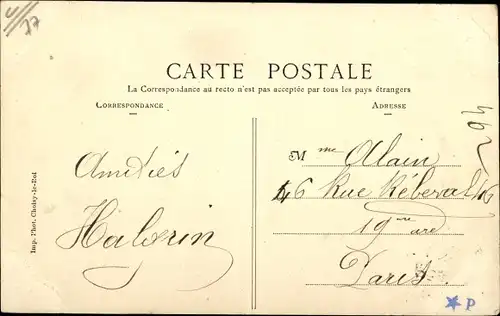 CARTE POSTALE
La Correspondance au recto n'est pas acceptée par tous les pays étrangers
CORRESPONDANCE
ADRESSE
Amitiés
Halverin
Mme Alain
46 Rue Rébeval
19me are
Paris
Imp. Phot. Choisy-le-Roi
77
P